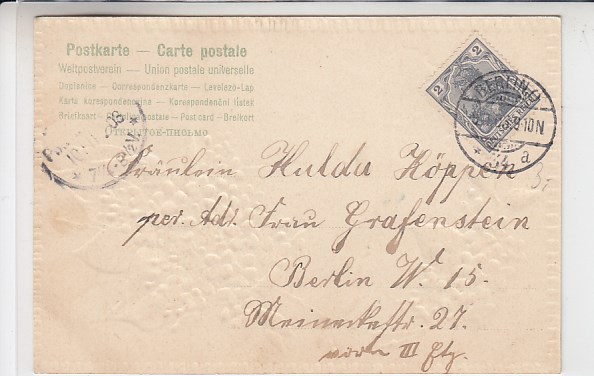 Postkarte — Carte postale
Weltpostverein — Union postale universelle
Dopisnice - Correspondenzkarte - Levelező-Lap
Karta korespondencyjna - Korespondenční lístek
Briefkort - postale - Post card - Brefkort
2 2
BERLIN
8-10N
* a
* 7
Fräulein Hulda Köppen
per. Adr. Frau Grafenstein
Berlin W. 15.
Meineckestr. 27.
vorn III Etg.